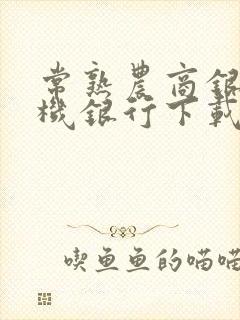 常熟農商銀
機銀行下載
喫魚魚的喵喵